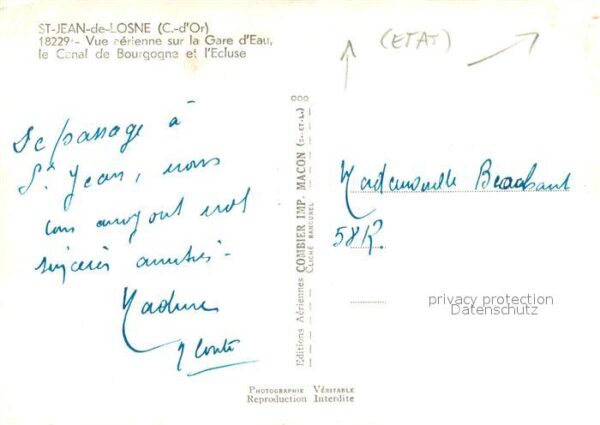 ST-JEAN-de-LOSNE (C.-d'Or)
18229 - Vue aérienne sur la Gare d'Eau,
le Canal de Bourgogne et l'Ecluse
(ETAT)
De passage à
St. Jean, nous
vous envoyons nos
sincères amitiés -
Editions Aériennes COMBIER IMP. MACON (S.-ET-L.)
CLICHÉ RANCUREL
Mademoiselle
58 R.
privacy protection
Datenschutz
PHOTOGRAPHIE VÉRITABLE
Reproduction Interdite